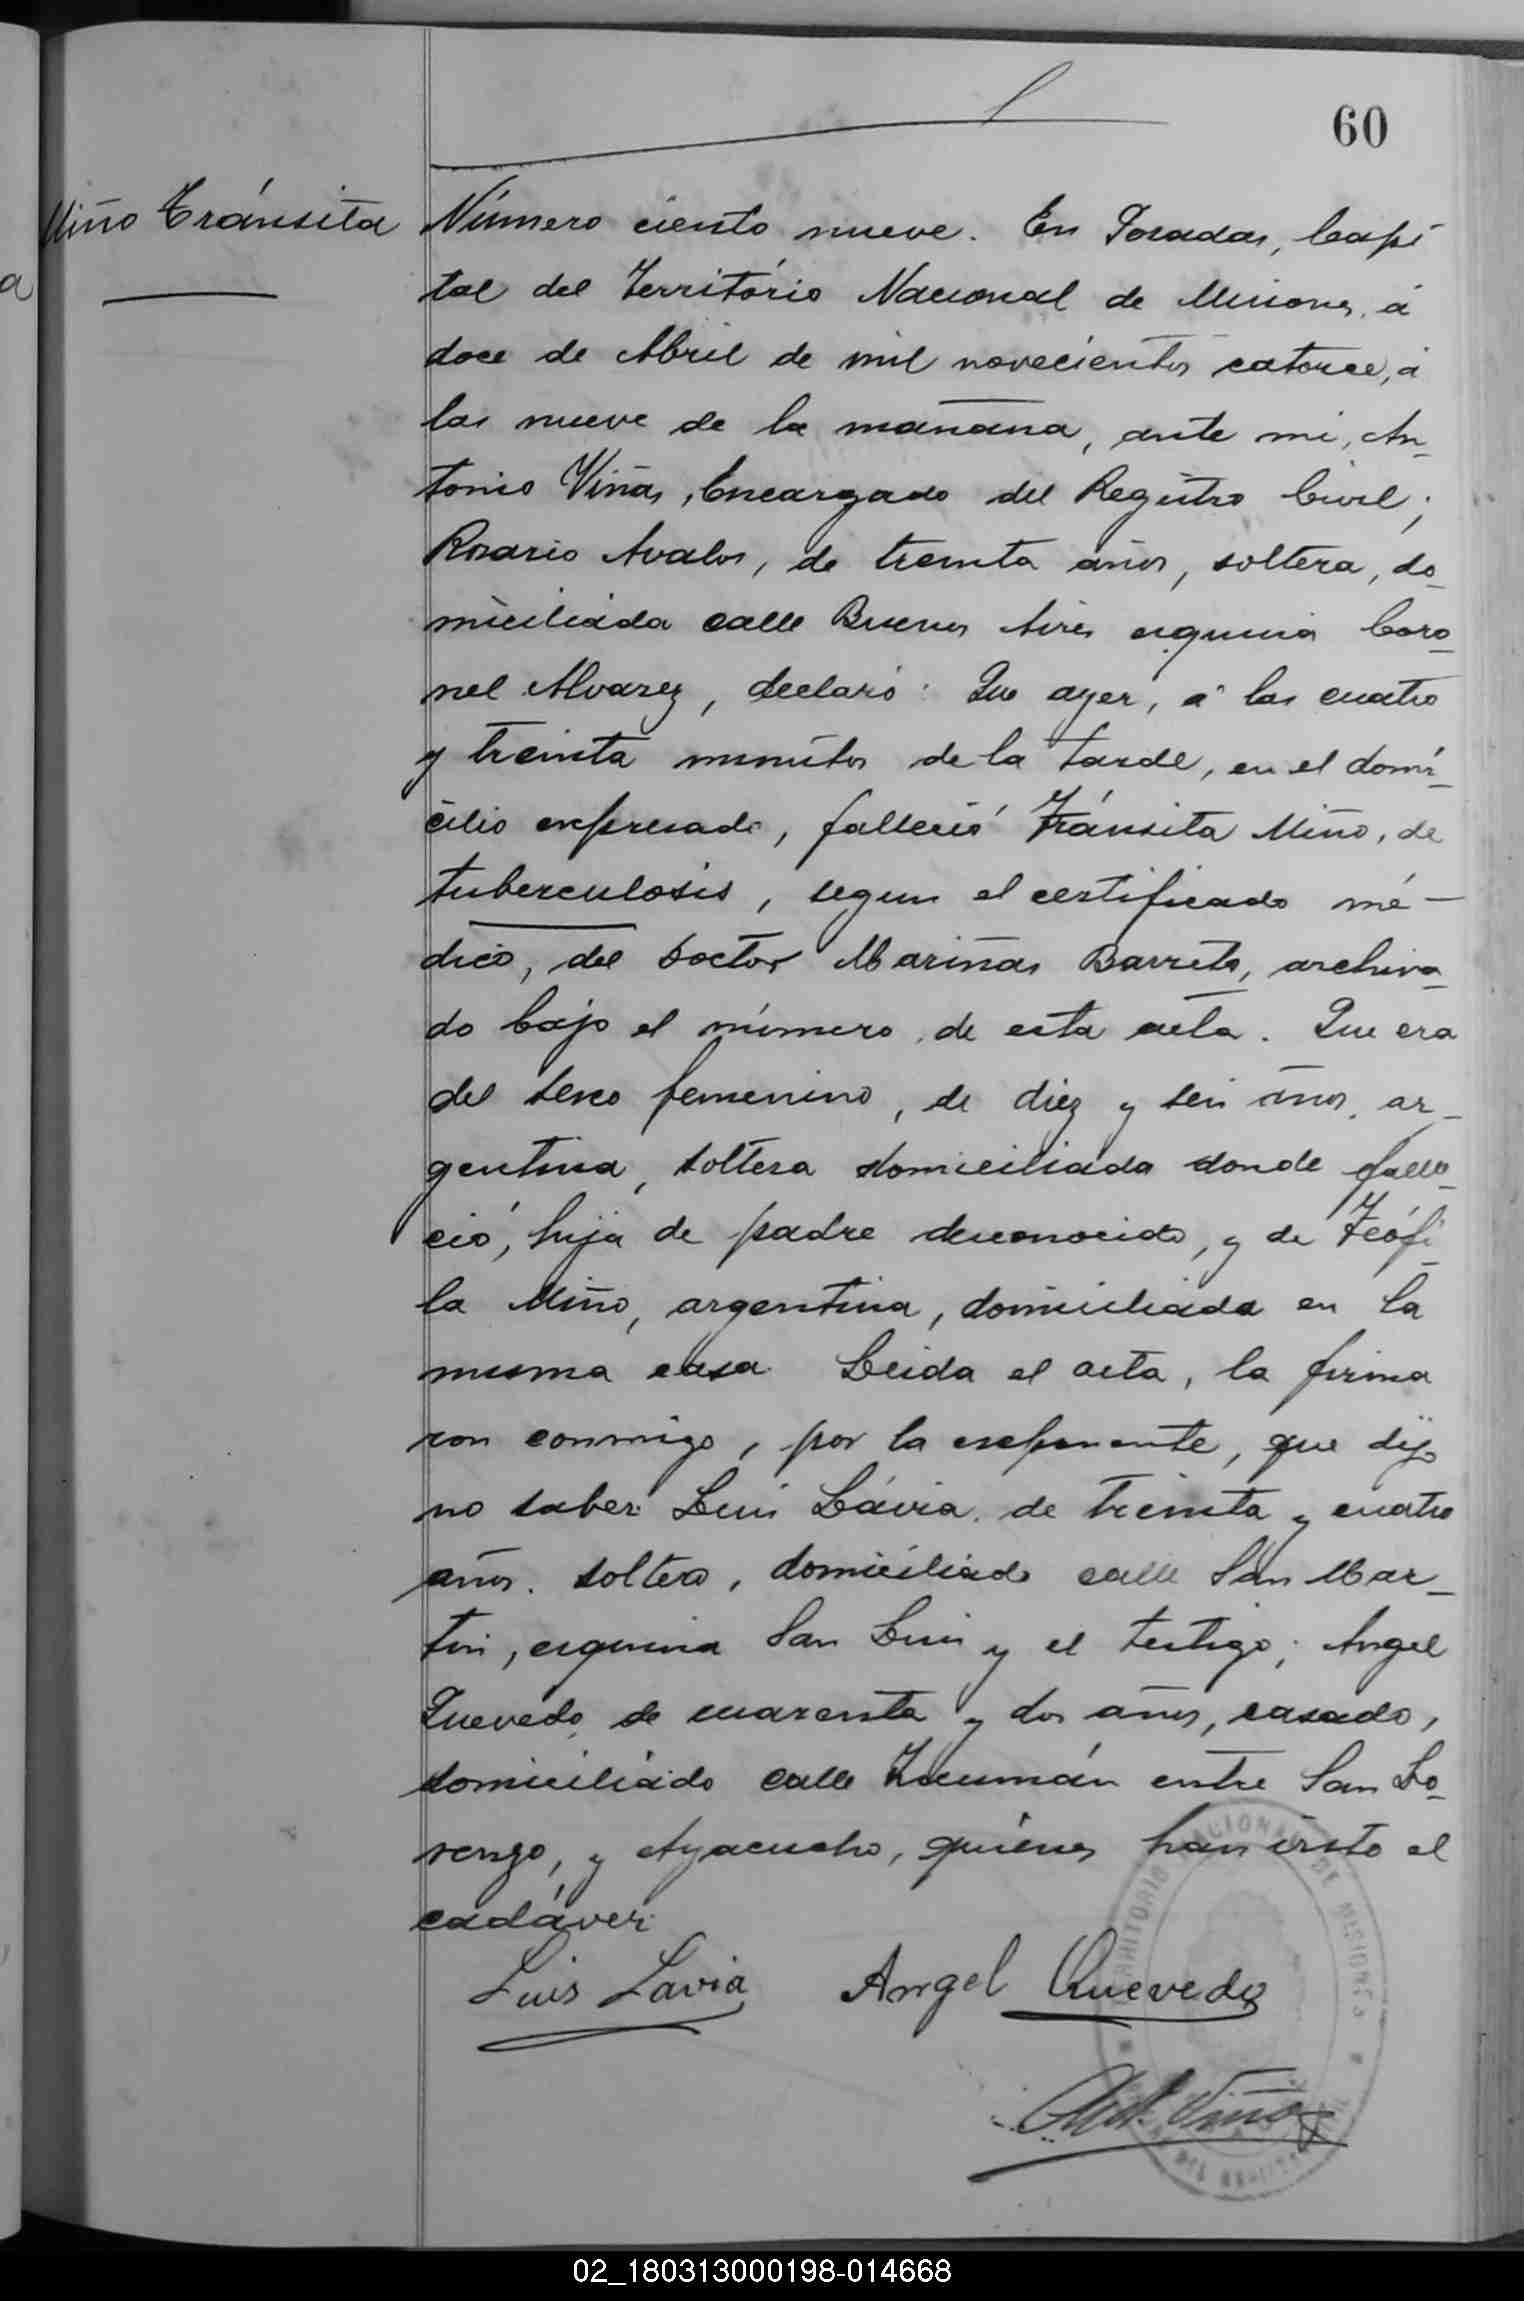 60
Miño Tránsita
Número ciento nueve. En Posadas, Capi
tal del Território Nacional de Misiones, á
doce de Abril de mil novecientos catorce, á
las nueve de la mañana, ante mi, An_
tonio Viñas, Encargado del Registro Civil;
Rosario Avalos, de treinta años, soltera, do_
miciliada calle Buenos Aires esquina Coro_
nel Alvarez, declaró: Que ayer, á las cuatro
y treinta minutos de la tarde, en el domi_
cilio expresado, falleció Tránsita Miño, de
tuberculosis, segun el certificado mé-
dico, del Doctor Mariñas Barreto, archiva_
do bajo el número, de esta acta. Que era
del sexo femenino, de diez y seis años, ar_
gentina, soltera domiciliada donde falle_
ció, hija de padre desconocido, y de Teófi_
la Miño, argentina, domiciliada en la
misma casa. Leida el acta, la firma
ron conmigo, por la exponente, que dijo
no saber Luis Lávia, de treinta y cuatro
años. soltero, domiciliado calle San Mar_
tin, esquina San Luis y el testigo; Angel
Quevedo, de cuarenta y dos años, casado,
domiciliado calle Tucumán entre San Lo_
renzo, y Ayacucho, quienes han visto el
cadáver.
Luis Lavia Angel Quevedo
Viñas
TERRITORIO NACIONAL DE MISIONES
02_180313000198-014668